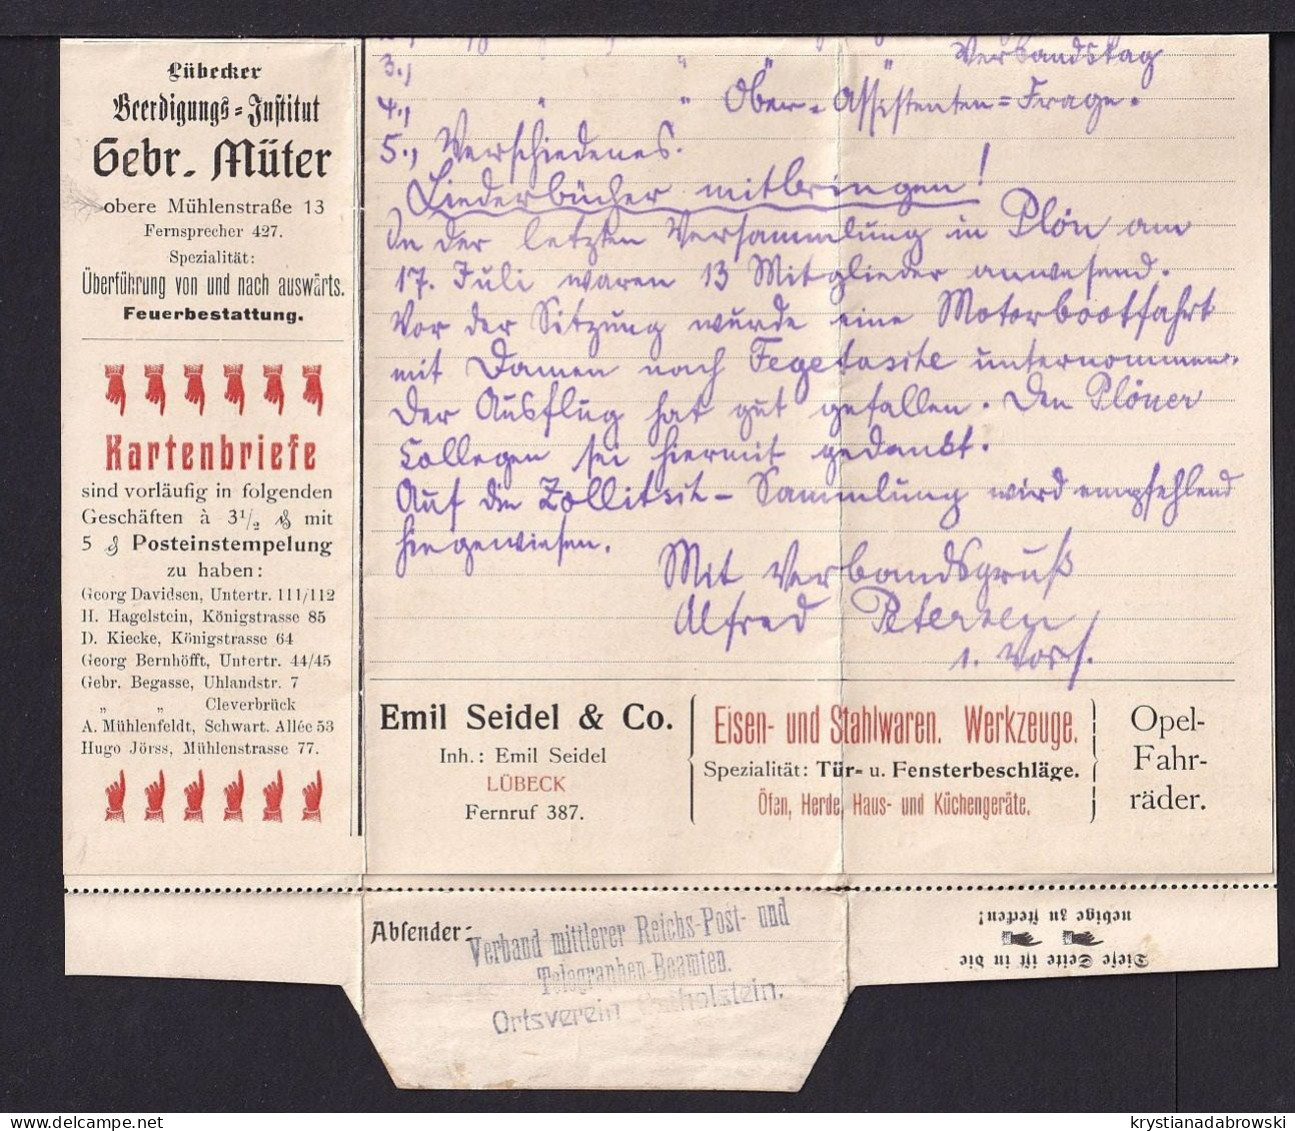 Lübecker
Beerdigungs-Institut
Gebr. Müter
obere Mühlenstraße 13
Fernsprecher 427.
Spezialität:
Überführung von und nach auswärts.
Feuerbestattung.
Kartenbriefe
sind vorläufig in folgenden
Geschäften à 3 1/2 ₰ mit
5 ₰ Posteinstempelung
zu haben:
Georg Davidsen, Untertr. 111/112
H. Hagelstein, Königstrasse 85
D. Kiecke, Königstrasse 64
Georg Bernhöfft, Untertr. 44/45
Gebr. Begasse, Uhlandstr. 7
„ „ Cleverbrück
A. Mühlenfeldt, Schwart. Allée 53
Hugo Jörss, Mühlenstrasse 77.
3., " " Verbandstag
4., " " Ober-Assistenten=Frage.
5., Verschiedenes.
Liederbücher mitbringen!
In der letzten Versammlung in Plön am
17. Juli waren 13 Mitglieder anwesend.
Vor der Sitzung wurde eine Motorbootfahrt
mit Damen nach Fegetasche unternommen.
Der Ausflug hat gut gefallen. Den Plöner
Collegen sei hiermit gedankt.
Auf die Zollitsch-Sammlung wird empfehlend
hingewiesen.
Mit Verbandsgruß
Alfred Petersen
1. Vors.
Emil Seidel & Co.
Inh.: Emil Seidel
LÜBECK
Fernruf 387.
Eisen- und Stahlwaren. Werkzeuge.
Spezialität: Tür- u. Fensterbeschläge.
Öfen, Herde, Haus- und Küchengeräte.
Opel-
Fahr-
räder.
Absender:
Verband mittlerer Reichs-Post- und
Telegraphen-Beamten.
Ortsverein Ostholstein.
Diese Seite ist in die
nebige zu stecken!
krystianadabrowski